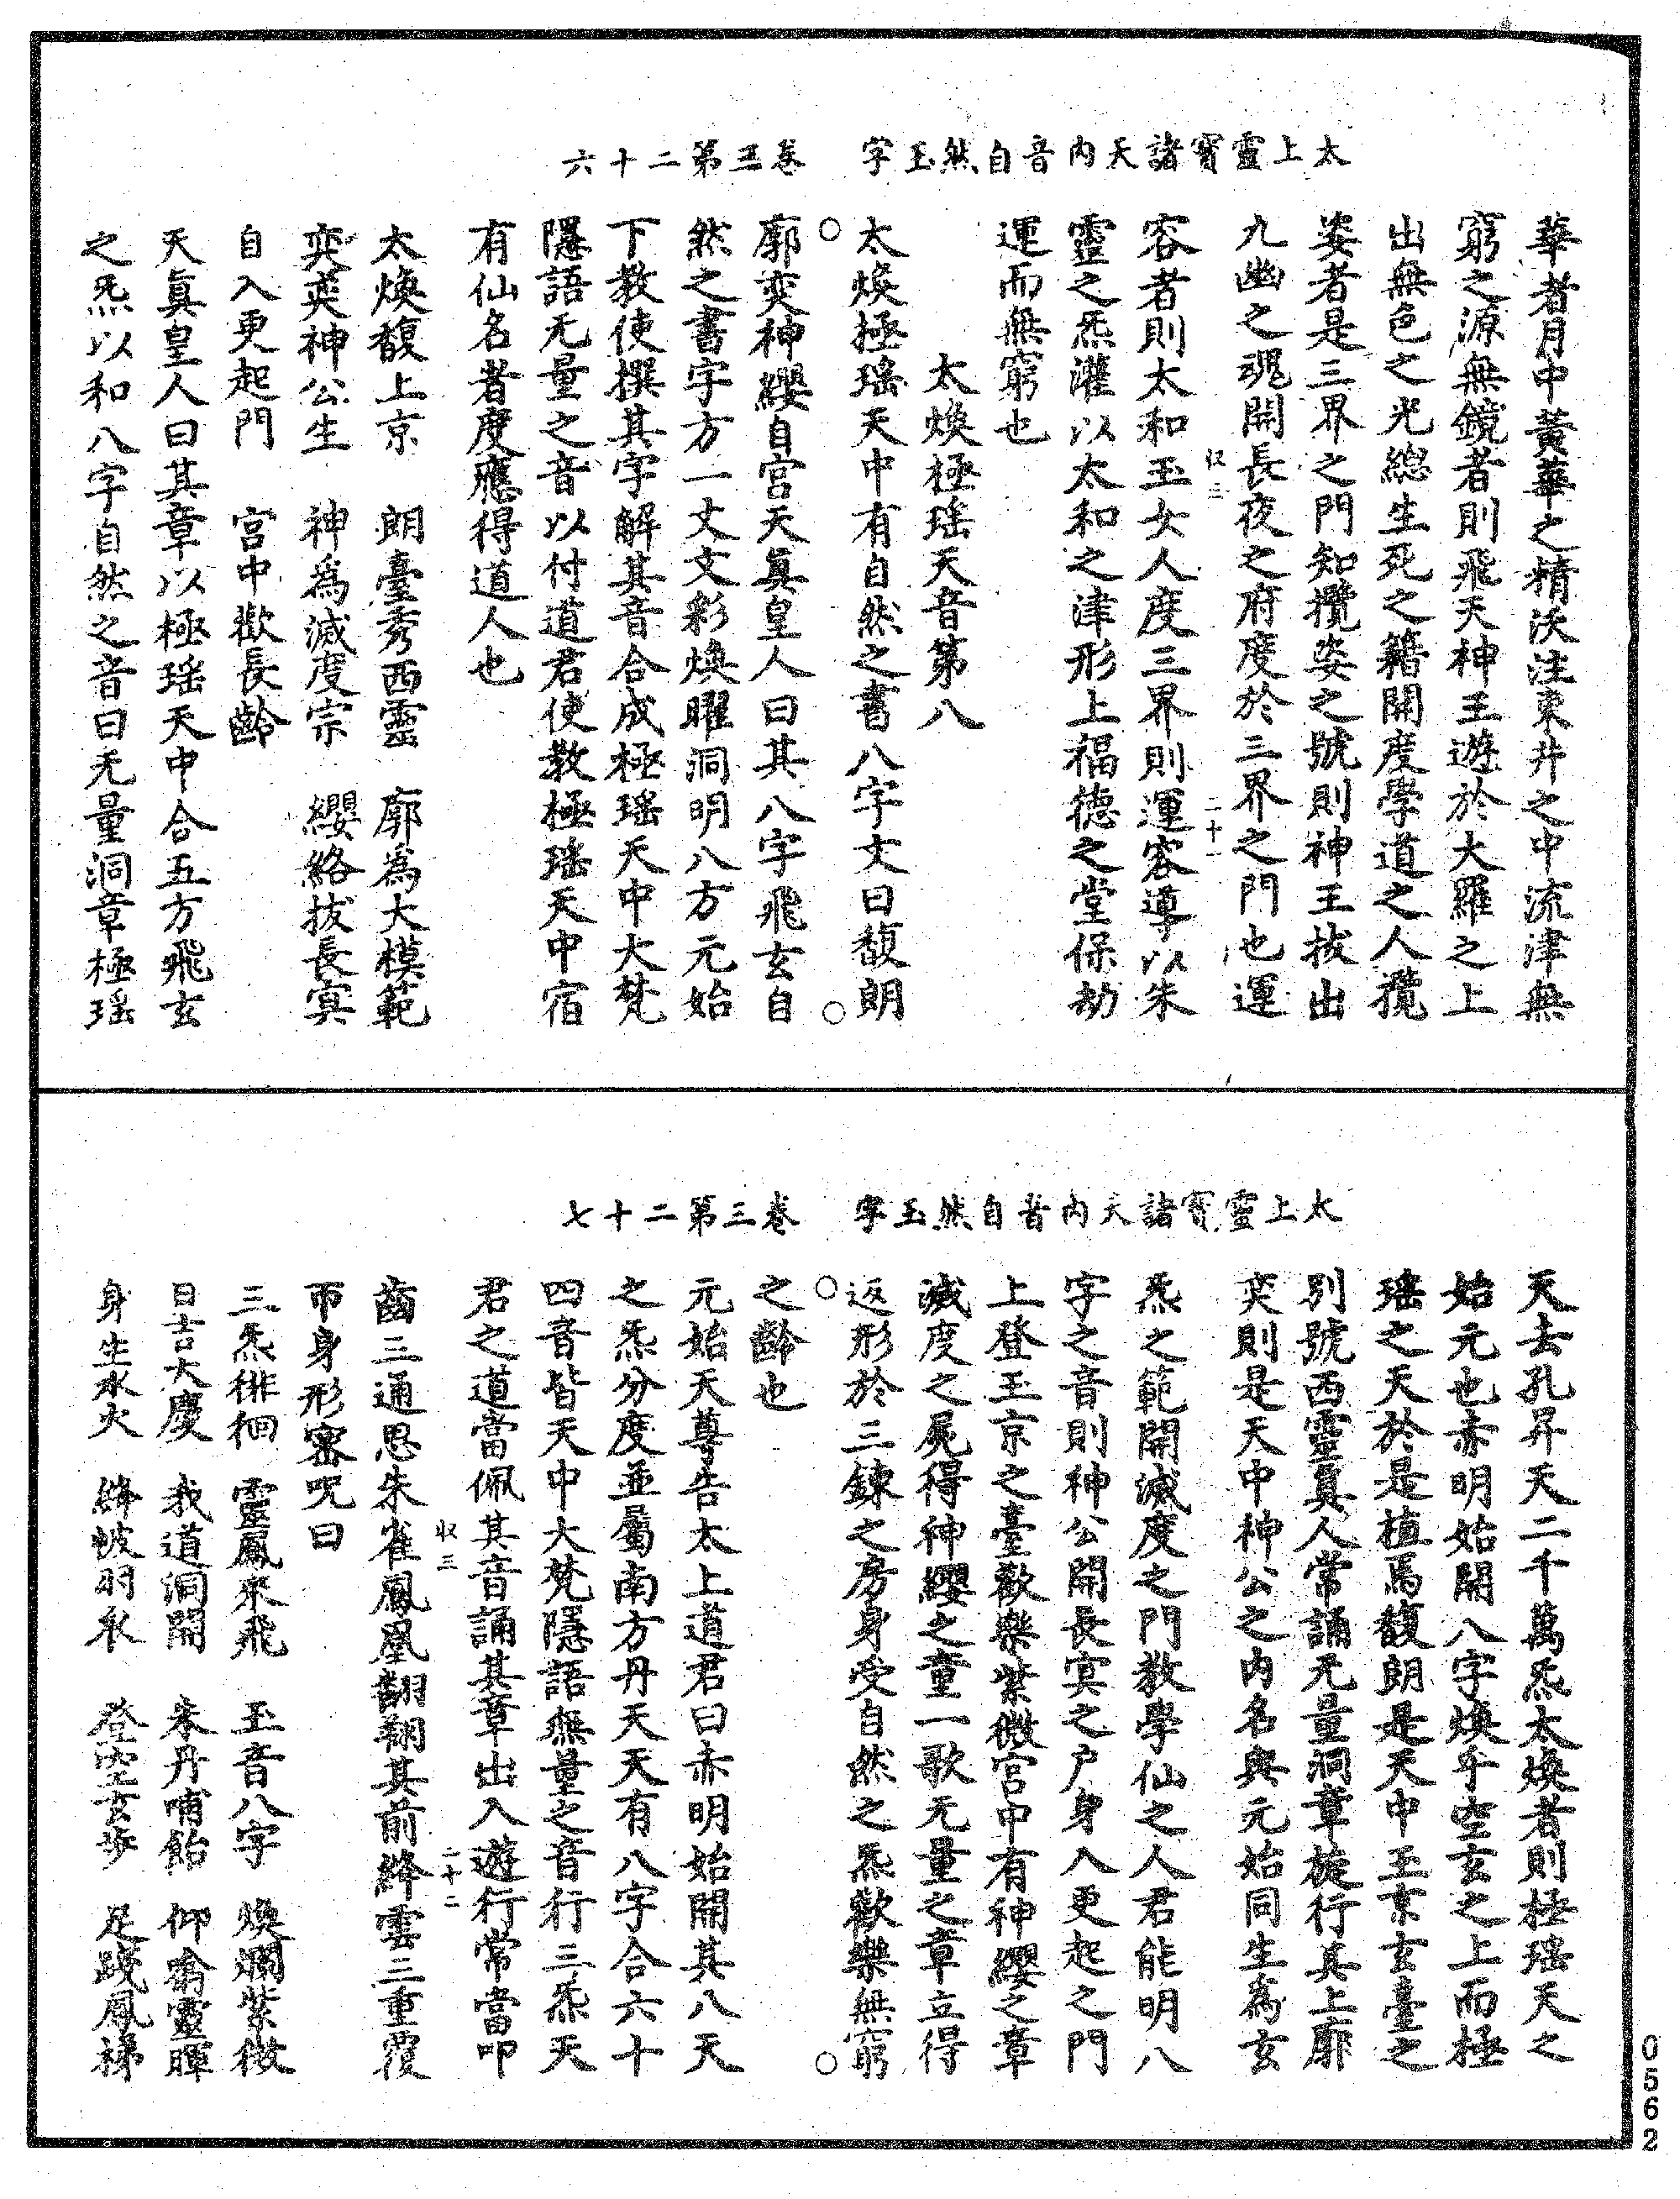 太上靈寶諸天內音自然玉字　卷三第二十六
華者月中黃華之精沃注東井之中流津無
窮之源無鏡者則飛天神王遊於大羅之上
出無色之光總生死之籍開度學道之人攬
姿者是三界之門知攬姿之號則神王拔出
九幽之魂開長夜之府度於三界之門也運
収三　二十一
容者則太和玉女人度三界則運容導以朱
靈之炁灌以太和之津形上福德之堂保劫
運而無窮也
太煥極瑤天音第八
太煥極瑤天中有自然之書八字文曰馥朗
廓奕神纓自宮天真皇人曰其八字飛玄自
然之書字方一丈文彩煥曜洞明八方元始
下教使撰其字解其音合成極瑤天中大梵
隱語无量之音以付道君使教極瑤天中宿
有仙名者度應得道人也
太煥馥上京　朗臺秀西靈　廓為大模範
奕奕神公生　神為滅度宗　纓絡拔長冥
自入更起門　宮中歡長齡
天真皇人曰其章以極瑤天中合五方飛玄
之炁以和八字自然之音曰无量洞章極瑤
太上靈寶諸天內音自然玉字　卷三第二十七
天去孔昇天二千萬炁太煥者則極瑤天之
始元也赤明始開八字煥乎空玄之上而極
瑤之天於是植焉馥朗是天中玉京玄臺之
別號西靈真人常誦无量洞章旋行其上廓
奕則是天中神公之內名與元始同生為玄
炁之範開滅度之門教學仙之人君能明八
字之音則神公開長冥之戶身入更起之門
上登玉京之臺歡樂紫微宮中有神纓之章
滅度之屍得神纓之童一歌无量之章立得
返形於三鍊之房身受自然之炁歡樂無窮
之齡也
元始天尊告太上道君曰赤明始開其八天
之炁分度並屬南方丹天天有八字合六十
四音皆天中大梵隱語無量之音行三炁天
君之道當佩其音誦其章出入遊行常當叩
収三　二十二
齒三通思朱雀鳳凰翻翔其前絳雲三重覆
帀身形密呪曰
三炁徘徊　靈鳳來飛　玉音八字　煥爛紫微
日吉大慶　我道洞開　朱丹哺飴　仰禽靈暉
身生水火　絳帔羽衣　登空玄步　足踐鳳梯
0562